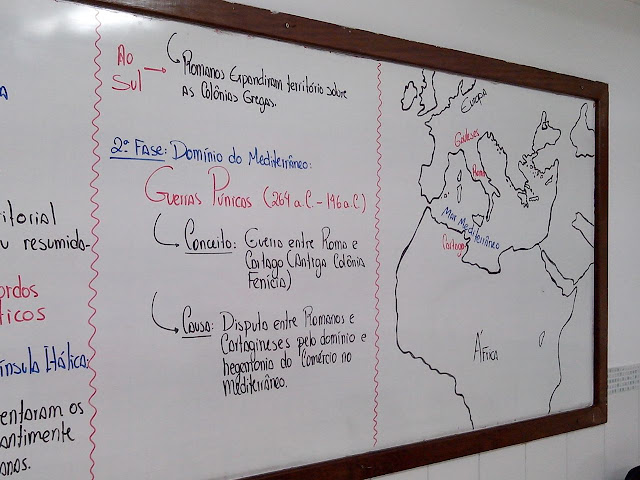 A
ritorial
u resumida-
ordos
ticos
ínsula Itálica:
entaram os
antimente
anas.
Ao
Sul
Romanos Expandiram território sobre
as Colônias Gregas.
2ª Fase: Domínio do Mediterrâneo:
Guerras Púnicas (264 a.C. - 146 a.C.)
Conceito: Guerra entre Roma e
Cartago (Antiga Colônia
Fenícia)
Causa: Disputa entre Romanos e
Cartagineses pelo domínio e
hegemonia do Comércio no
Mediterrâneo.
Europa
Gauleses
Roma
Mar Mediterrâneo
Cartago
África